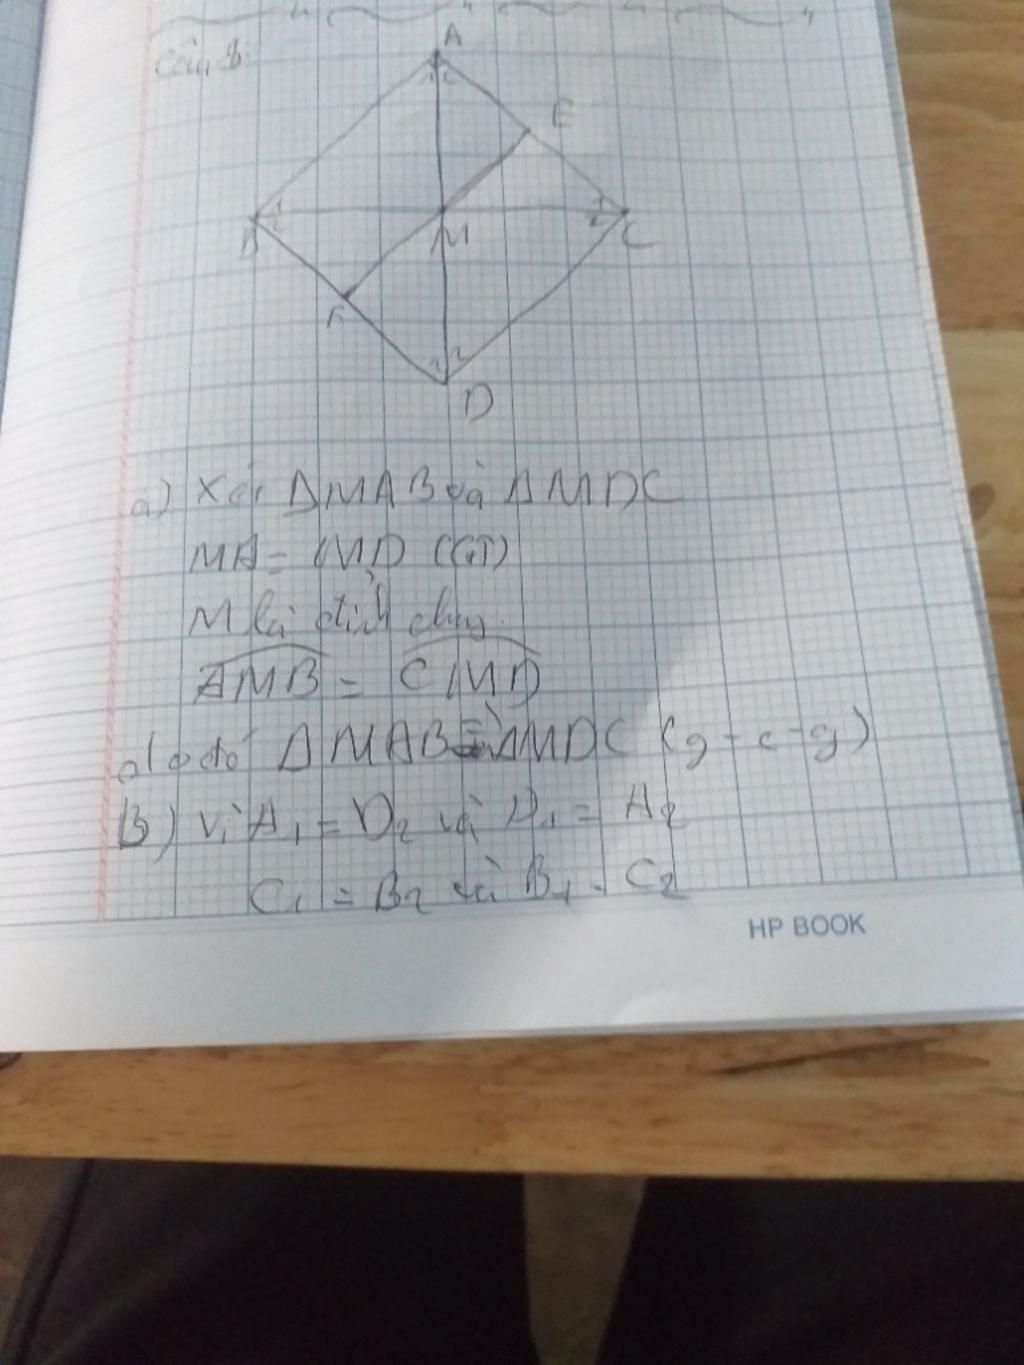 Câu 8:
A
E
B
M
C
F
D
a) Xét ΔMAB và ΔMDC
MA = MD (GT)
M là đỉnh chung
AMB = CMD
do đó ΔMAB = ΔMDC (g-c-g)
B) Vì A1 = D2 và D1 = A2
C1 = B2 và B1 = C2
HP BOOK